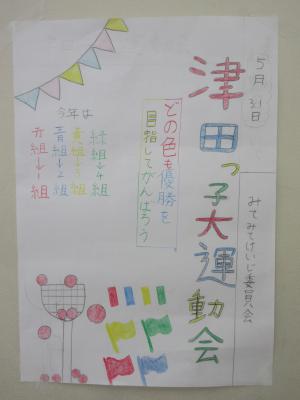 5月31日
津田っ子大運動会
みてみてけいじ委員会
どの色も優勝を
目指してがんばろう
今年は
緑組→4組
黄組→3組
青組→2組
赤組→1組